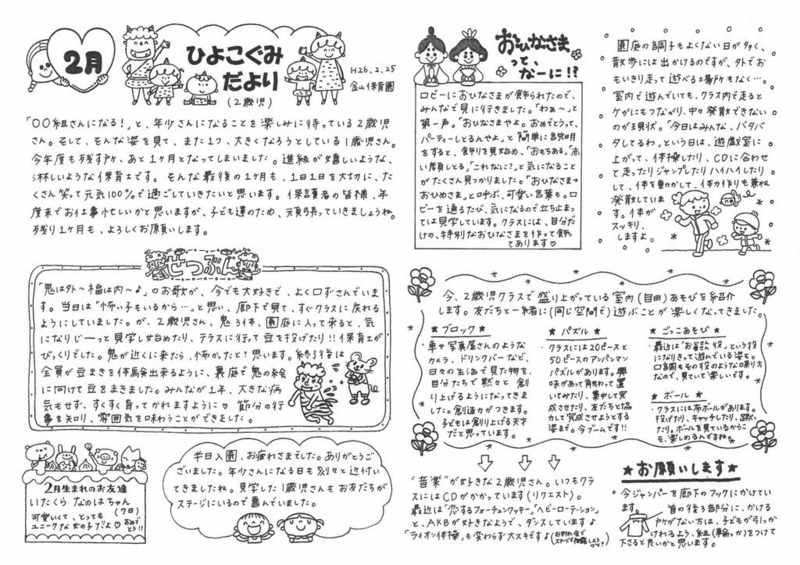 2月
ひよこぐみ
だより
(2歳児)
H26.2.25
金山保育園
「○○組さんになる!」と、年少さんになることを楽しみに待っている2歳児
さん。そして、そんな姿を見て、また1つ、大きくなろうとしている1歳児さん。
今年度も残すところ、あと1ヶ月となってしまいました。進級が嬉しいような、
淋しいような保育士です。そんな最後の1ヶ月も、1日1日を大切に、た
くさん笑って元気100%で過ごしていきたいと思います。保護者の皆様、年
度末でお仕事忙しいかと思いますが、子ども達のため、元気で頑張っていきましょうね。
残り1ヶ月も、よろしくお願いします。
せつぶん
「鬼は外〜福は内〜♪」のお歌が、今でも大好きで、よく口ずさんでいま
す。当日は「怖い子もいるから…」と思い、廊下で見て、すぐクラスに戻れる
ようにしていました。が、2歳児さん、鬼さんが、園庭に入って来ると、気
になりじーっと見学し始めたり、テラスに行って豆を投げたり!!保育士が
びっくりでした。鬼が近くに来たら、怖かったと思います。終了後は
全員が豆まきを体験出来るように、裏庭で鬼の絵
に向けて豆をまきました。みんなが1年、大きな病
気もせず、すくすく育ってくれますように♡ 節分の行
事を知り、雰囲気を味わうことができました。
2月生まれのお友達
いたくら なのはちゃん
(7日)
可愛いくて、とっても
ユニークな女の子だよ♡
おめでとう!!
半日入園、お疲れさまでした。ありがとうご
ざいました。年少さんになる日も刻々と近付い
てきましたね。見学した1歳児さんもお友だちが
ステージにいるので喜んでいました。
おひなさま
って、なーに!?
ロビーにおひなさまが飾られたので、
みんなで見に行きました。「わぁ〜」と
第一声。「おひなさまよ。おめでとうって、
パーティーしとるんやよ。」と簡単に説明
をすると、飾りを見始め、「おもちある。」「赤
い席してる。」「これなに?」と気になること
がたくさん見つかりました。「おひなさま→
おひめさま」と呼ぶ、可愛い言葉も。ロ
ビーを通るたび、気になるので立ち止まっ
ては見学しています。クラスには、自分だ
けの、特別なおひなさまを作って飾っ
てあります♡
園庭の調子もよくない日が多く、
散歩には出かけるのですが、外でお
もいきり走って遊べる場所もなく…。
室内で遊んでいても、クラス内で走ると
ケガにもつながり、中々発散できない
のが現状。「今日はみんな、バタバ
タしてるわ。」という日は、遊戯室に
上がって、体操したり、CDに合わせ
て走ったりジャンプしたりハイハイしたり
して、体を動かして、体の作りも兼ね
発散しています。体が
スッキリ
しますよ。
今、2歳児クラスで盛り上がっている室内(自由)あそびを紹介
します。友だちと一緒に(同じ空間で)遊ぶことが楽しくなってきました。
★ブロック★
・車や写真屋さんのような
カメラ、ドリンクバーなど、
日々の生活で見た物を、
自分たちで黙々と創
り上げるようになってきま
した。創造力がつきます。
子どもは創り上げる天才
だと思っています。
★パズル★
・クラスには20ピースと
50ピースのアンパンマン
パズルがあります。興
味があって自分で置
いてみたり、集中して完
成させたり、友だちと協力
して完成させようとする
姿まで。今ブームです!!
★ごっこあそび★
・最近は「お客様役」という役
になりきって遊んでいる姿も。
口調もその役のような喋り方
なので、見ていて楽しいです。
★ボール★
・クラスには布ボールがあります。
投げたり、キャッチしたり、蹴っ
たり。ボールを見せるからこ
そ、楽しめるんですね。
"音楽"が好きな2歳児さん。いつもクラ
スにはCDがかかっています(リクエスト)。
最近は"恋するフォーチュンクッキー"、"ヘビーローテーション"
と、AKBが好きなようで、ダンスしています♪
"ライオン体操"も変わらず大スキです♪
★お願いします★
・今ジャンパーを廊下のフックにかけてい
ます。首の後ろ部分に、かける
所がない方は、子どもが引っか
けれるよう、紐(輪っか)をつけて
下さると良いかと思います。